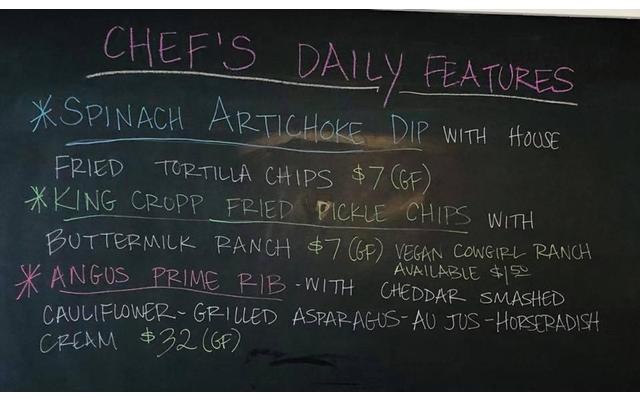 CHEF'S DAILY FEATURES
*SPINACH ARTICHOKE DIP WITH HOUSE
FRIED TORTILLA CHIPS $7 (GF)
*KING CROPP FRIED PICKLE CHIPS WITH
BUTTERMILK RANCH $7 (GF) VEGAN COWGIRL RANCH
AVAILABLE $1.50
*ANGUS PRIME RIB - WITH CHEDDAR SMASHED
CAULIFLOWER - GRILLED ASPARAGUS - AU JUS - HORSERADISH
CREAM $32 (GF)